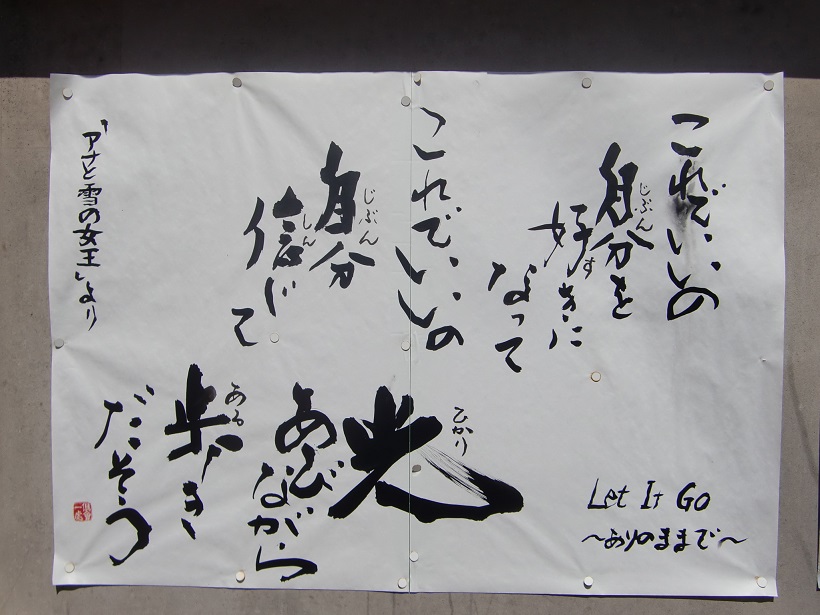 これでいいの
自分を
じぶん
好きに
す
なって
これでいいの
自分
じぶん
信じて
しん
光
ひかり
あびながら
歩き
ある
だそう
「アナと雪の女王」より
Let It Go
～ありのままで～